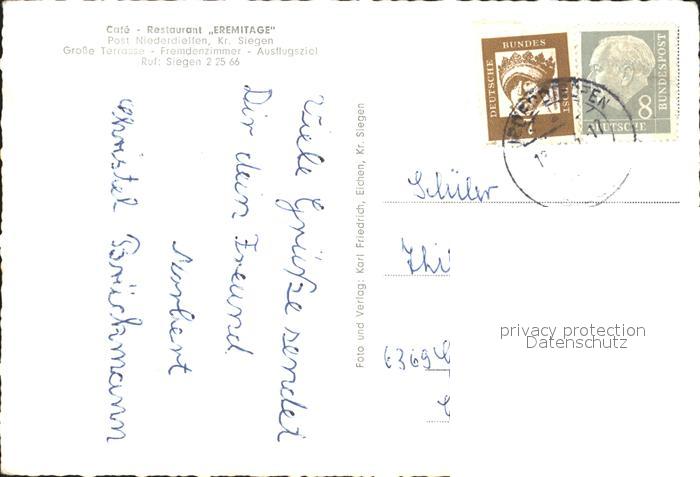 Café - Restaurant „EREMITAGE"
Post Niederdielfen, Kr. Siegen
Große Terrasse - Fremdenzimmer - Ausflugsziel
Ruf: Siegen 2 25 66
Viele Grüße sendet
Dir dein Freund
Norbert
Christel Brüchmann
Foto und Verlag: Karl Friedrich, Eichen, Kr. Siegen
DEUTSCHE
BUNDES
POST
DEUTSCHE
BUNDESPOST
8
Schüler
privacy protection
Datenschutz